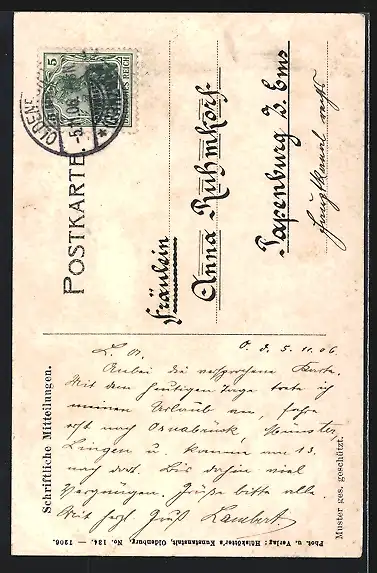 POSTKARTE.
5
DEUTSCHES REICH
OLDENBURG
5.11.06
Fräulein
Anna Ruhmkorf
Papenburg z. Ems
Hauptkanal rechts
Schriftliche Mitteilungen.
O. d. 5.11.06
L. A.
Anbei die versprochene Karte.
Mit dem heutigen Tage trete ich
meinen Urlaub an, fahre
erst nach Osnabrück, Münster,
Lingen u. komme am 13.
nach dort. Bis dahin viel
Vergnügen. Grüße bitte alle.
Mit herzl. Gruß Lambert
Muster ges. geschützt.
Phot. u. Verlag: Hitzkötter's Kunstanstalt, Oldenburg, No. 134. — 1206.